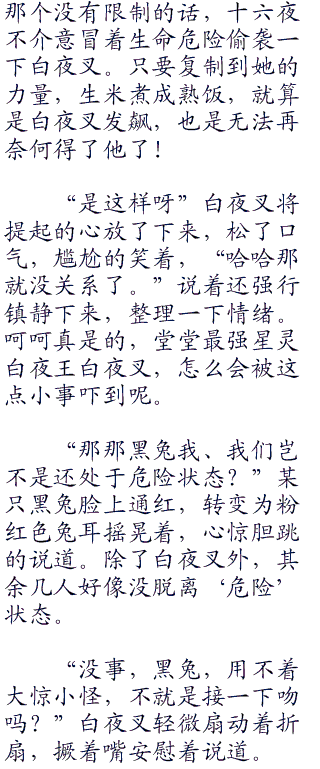 那个没有限制的话，十六夜
不介意冒着生命危险偷袭一
下白夜叉。只要复制到她的
力量，生米煮成熟饭，就算
是白夜叉发飙，也是无法再
奈何得了他了！
“是这样呀”白夜叉将
提起的心放了下来，松了口
气，尴尬的笑着，“哈哈那
就没关系了。”说着还强行
镇静下来，整理一下情绪。
呵呵真是的，堂堂最强星灵
白夜王白夜叉，怎么会被这
点小事吓到呢。
“那那黑兔我、我们岂
不是还处于危险状态？”某
只黑兔脸上通红，转变为粉
红色兔耳摇晃着，心惊胆跳
的说道。除了白夜叉外，其
余几人好像没脱离‘危险’
状态。
“没事，黑兔，用不着
大惊小怪，不就是接一下吻
吗？”白夜叉轻微扇动着折
扇，撅着嘴安慰着说道。